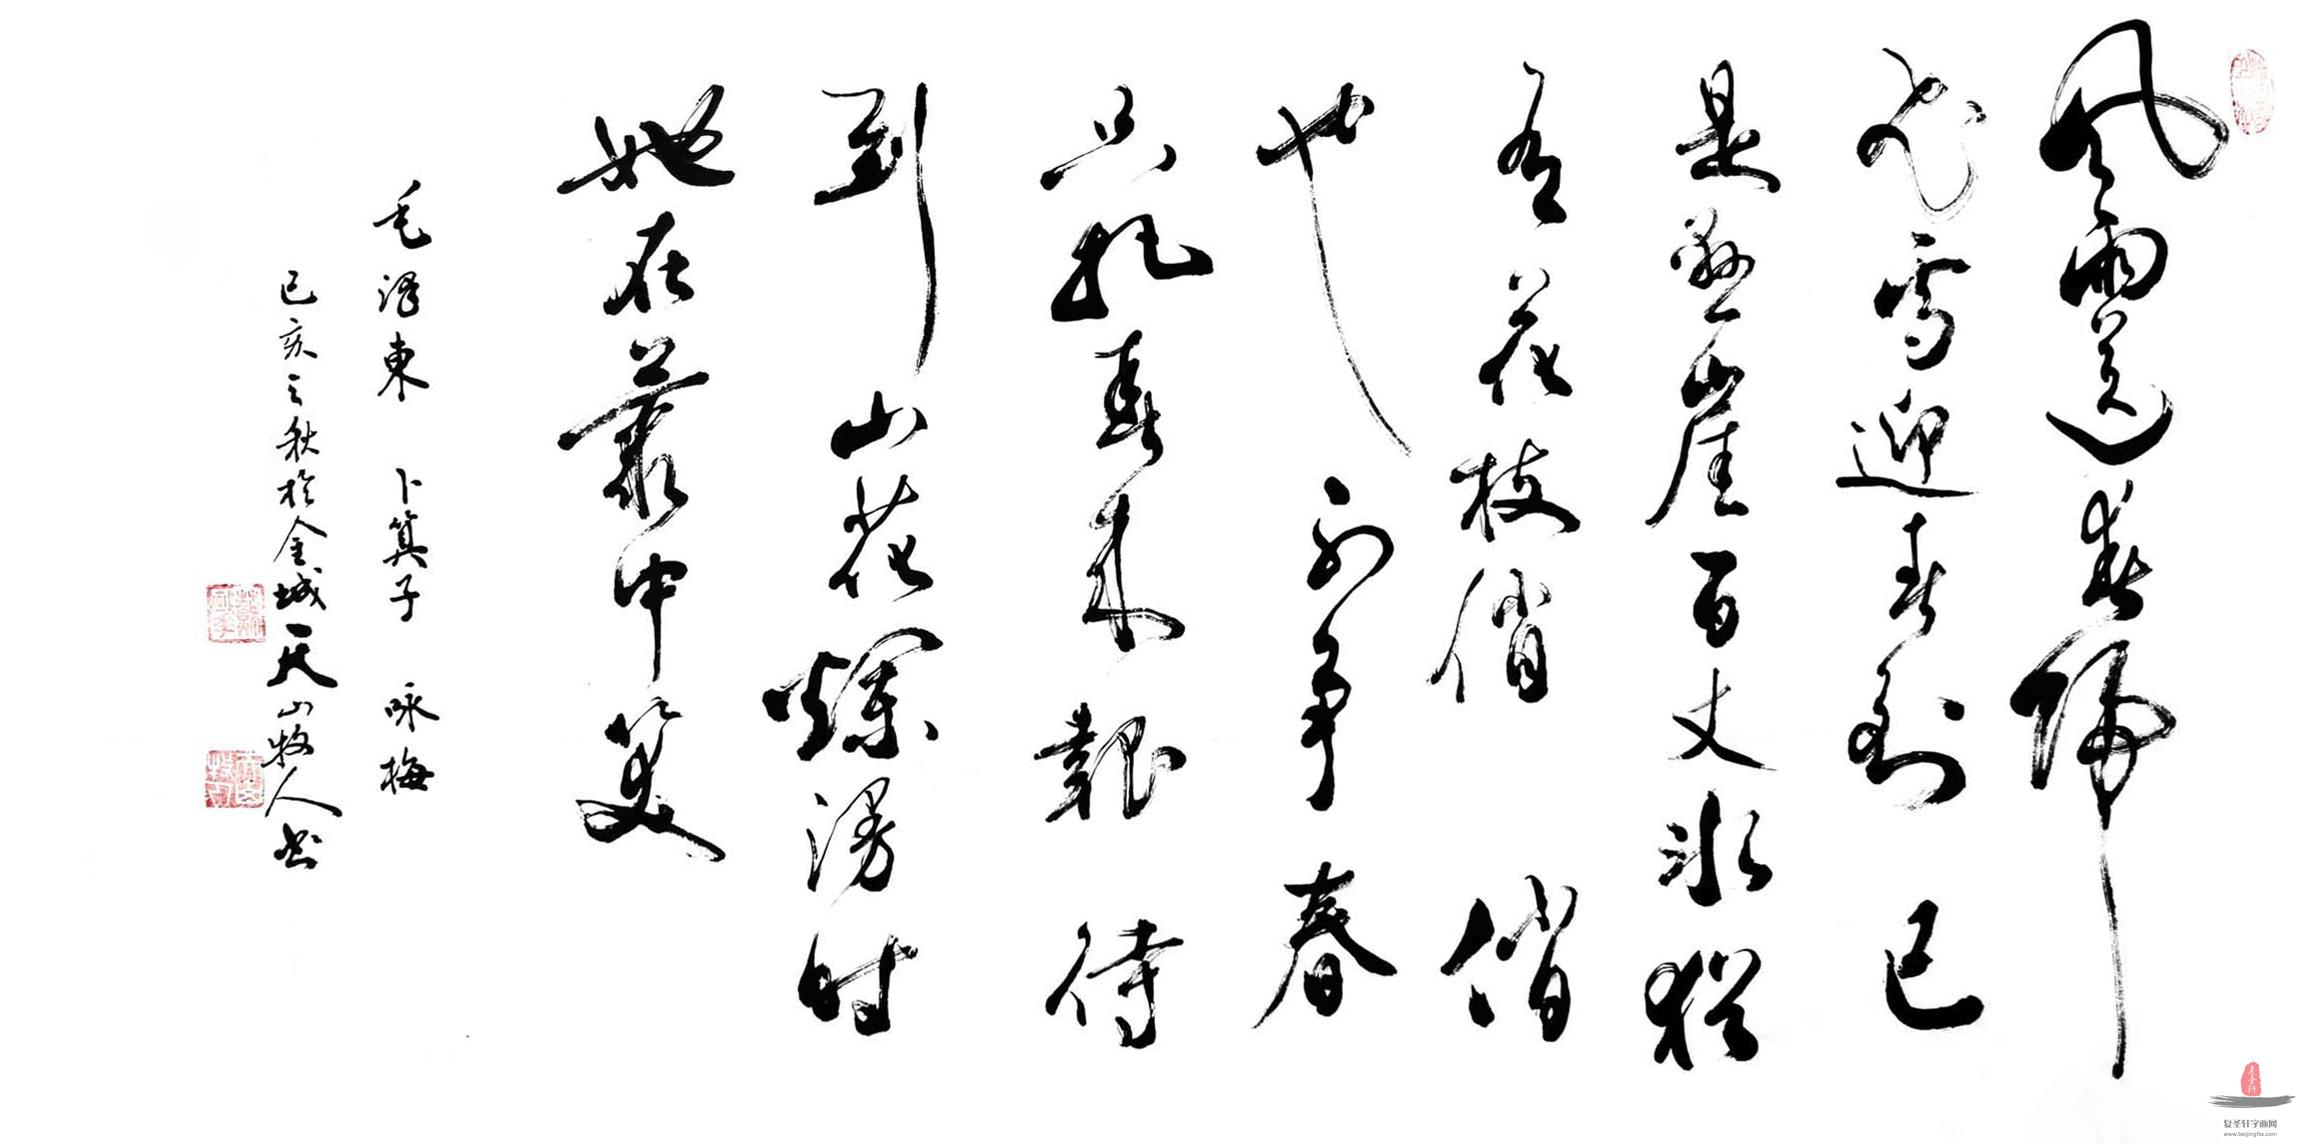 風雨送春歸
飛雪迎春到 已
是懸崖百丈冰 猶
有花枝俏 俏
也不爭春
只把春來報 待
到山花爛漫時
她在叢中笑
毛澤東 卜算子 咏梅
己亥之秋於金城天山牧人书
复圣轩字画网
www.beijingfsx.com